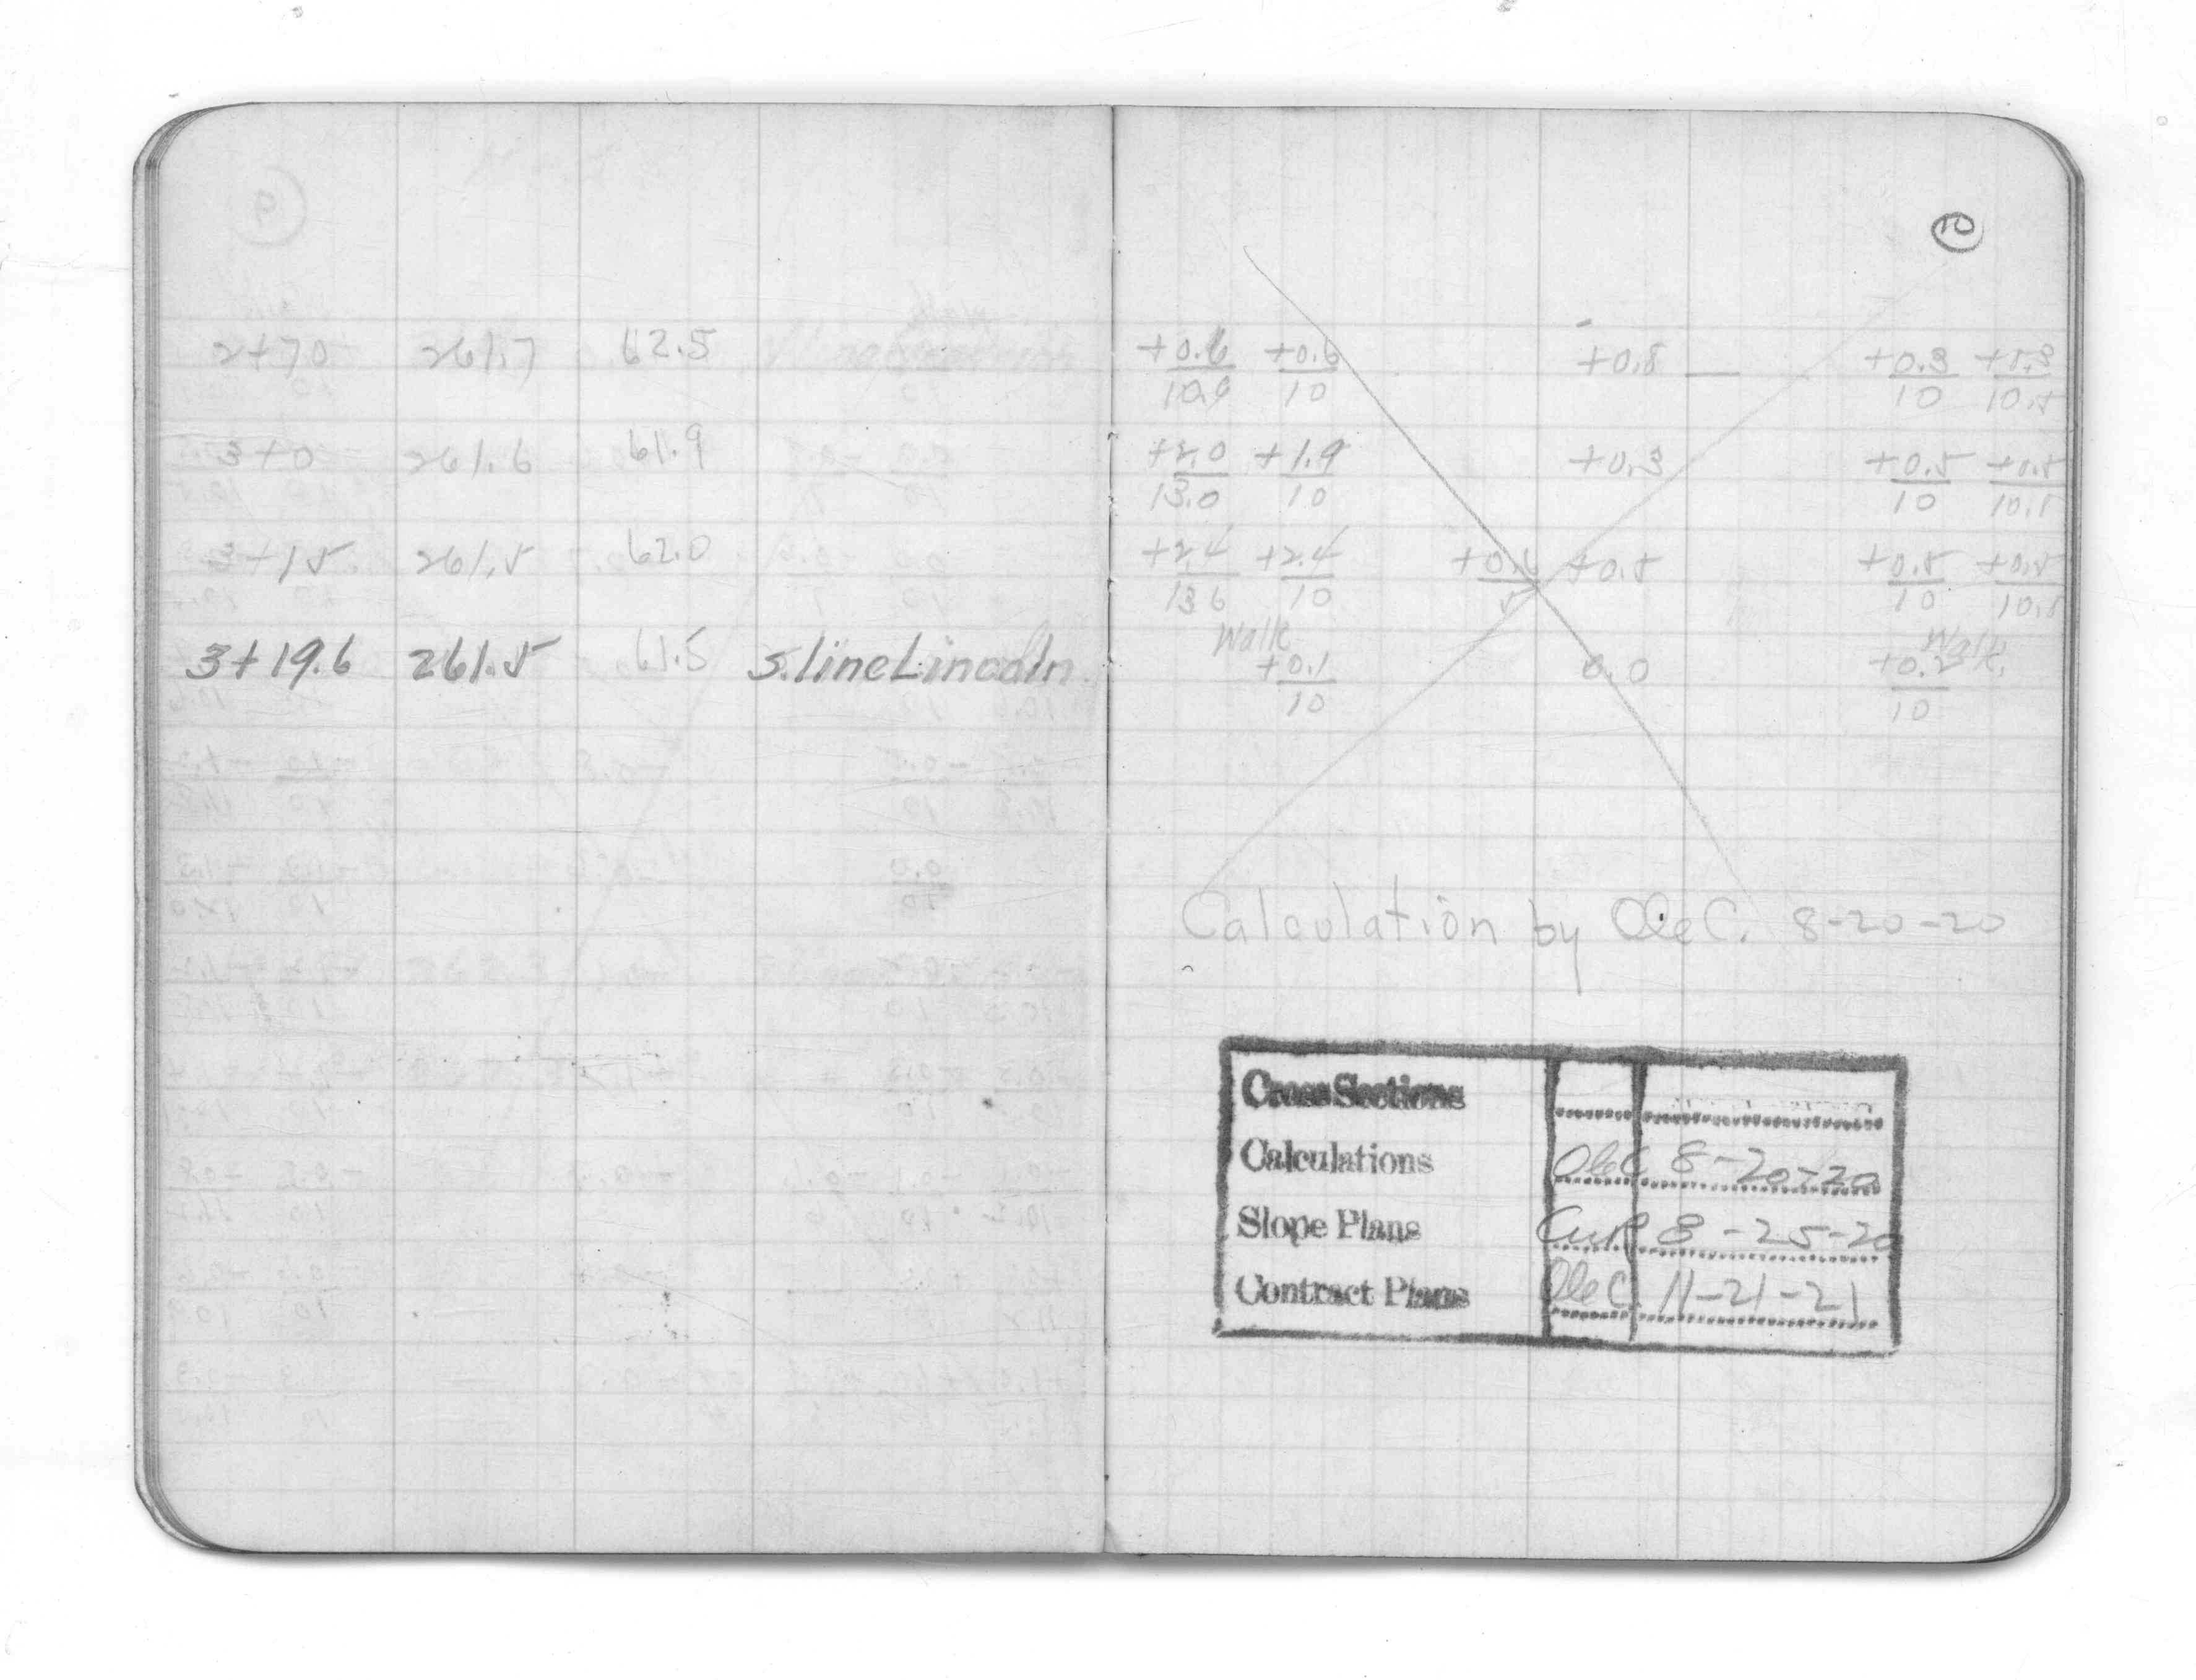 10
2+70 261.7 62.5 +0.6/10.9 +0.6/10 +0.8 +0.3/10 +0.3/10.5
3+0 261.6 61.9 +2.0/13.0 +1.9/10 +0.3 +0.5/10 +0.5/10.8
3+15 261.5 62.0 +2.4/13.6 +2.4/10 +0.5 +0.5/10 +0.5/10.8
Walk Walk.
3+19.6 261.5 61.5 S. line Lincoln +0.1/10 0.0 +0.2/10
Calculation by Ole C. 8-20-20
Cross Sections
Calculations Ole C 8-20-20
Slope Plans 8-25-20
Contract Plans Ole C. 11-21-21